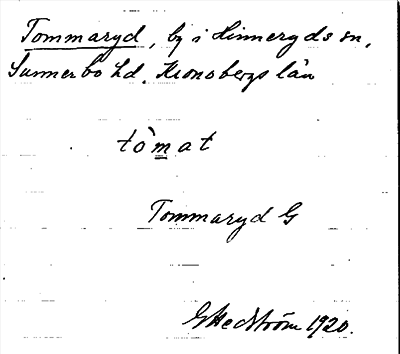 Tommaryd, by i Hinneryds sn,
Sunnerbo hd. Kronobergs län
tòmat
Tommaryd G
GHedström 1920.